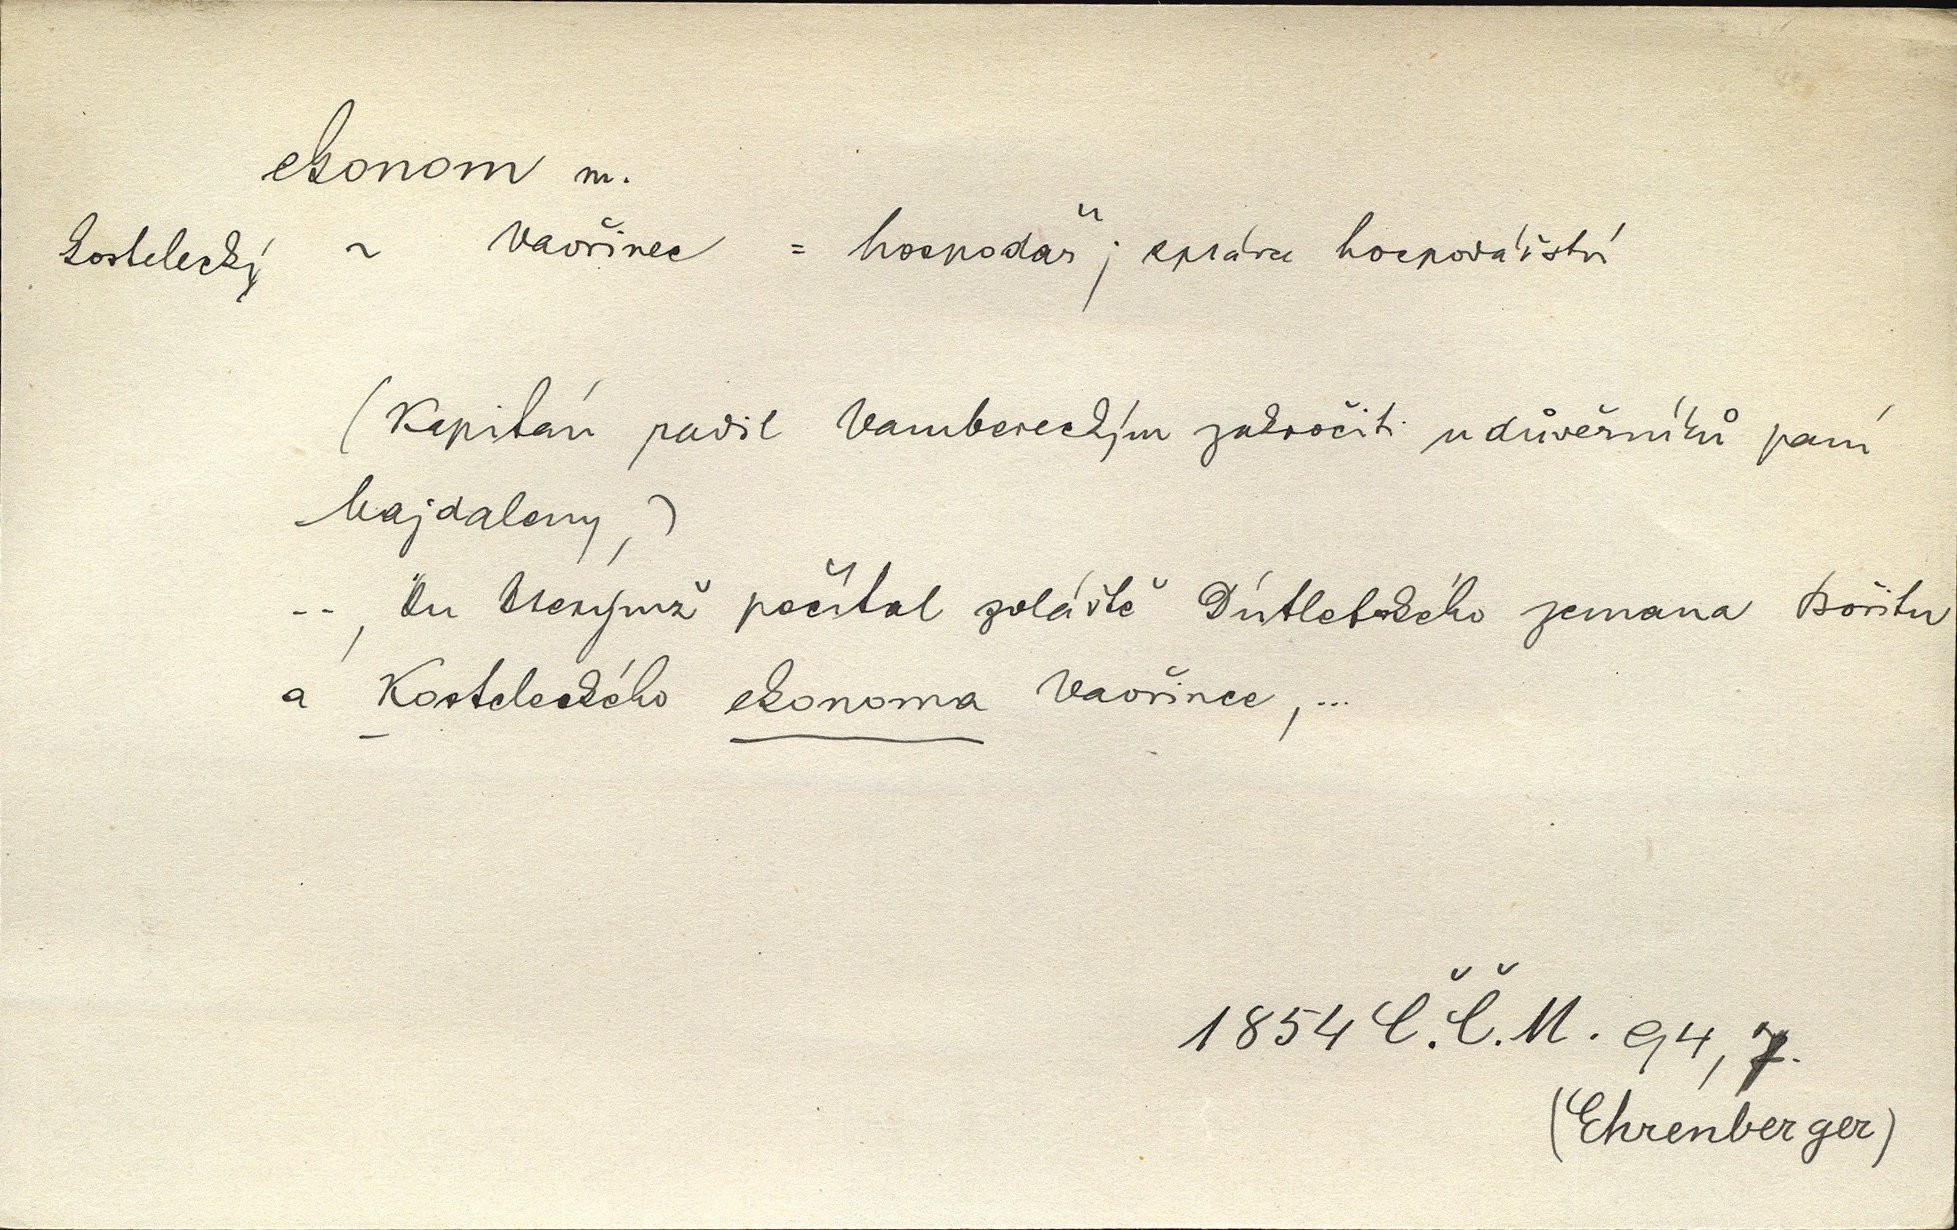 ekonom m.
kostelecký ~ Vavřinec = hospodář; správce hospodářství
(Kapitán radil Vambereckým zakročiti u důvěrníků paní
Majdaleny,)
--, ku kterýmž počítal zvláště Dútlebského zemana Bořitu
a Kosteleckého ekonoma Vavřince,...
1854 Č.Č.M. 94, 7.
(Ehrenberger)